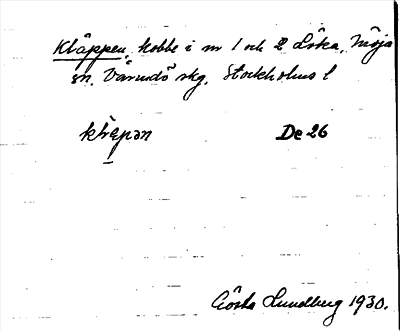 Kläppen, kobbe i nr 1 och 2 Löka, Möja
sn, Värmdö skg, Stockholms l
klæpən De 26
Gösta Lundberg 1930.